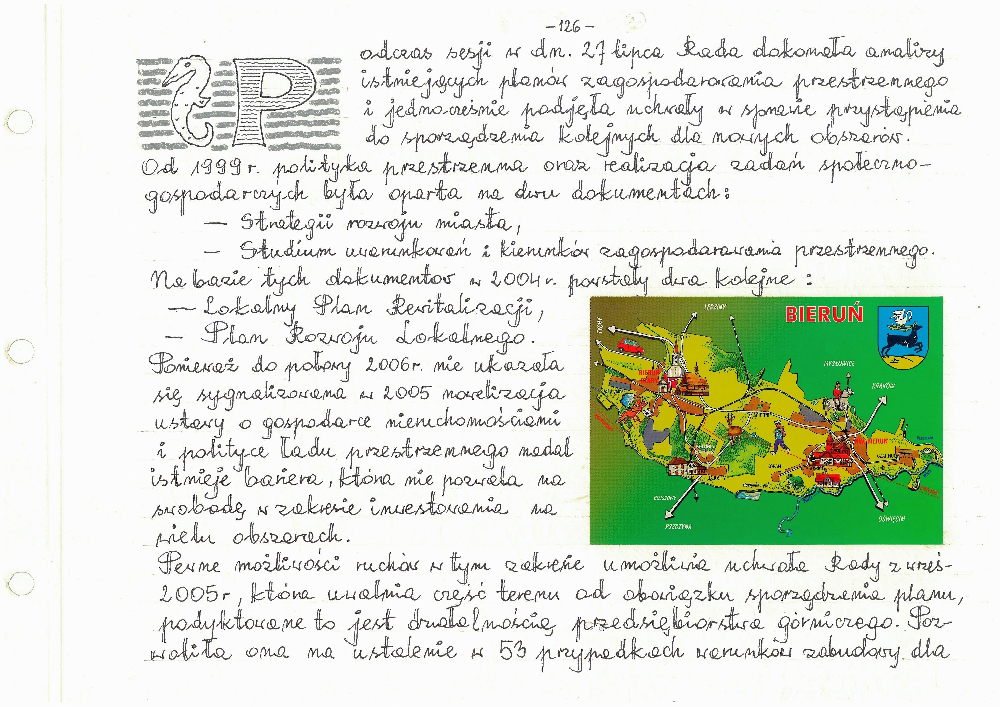 -126-
Podczas sesji w dn. 27 lipca Rada dokonała analizy
istniejących planów zagospodarowania przestrzennego
i jednocześnie podjęła uchwały w sprawie przystąpienia
do sporządzenia kolejnych dla nowych obszarów.
Od 1999 r. polityka przestrzenna oraz realizacja zadań społeczno-
gospodarczych była oparta na dwu dokumentach:
- Strategii rozwoju miasta,
- Studium uwarunkowań i kierunków zagospodarowania przestrzennego.
Na bazie tych dokumentów w 2004 r. powstały dwa kolejne :
- Lokalny Plan Rewitalizacji,
- Plan Rozwoju Lokalnego.
Ponieważ do połowy 2006 r. nie ukazała
się sygnalizowana w 2005 nowelizacja
ustawy o gospodarce nieruchomościami
i polityce ładu przestrzennego nadal
istnieje bariera, która nie pozwala na
swobodę w zakresie inwestowania na
wielu obszarach.
Pewne możliwości ruchów w tym zakresie umożliwia uchwała Rady z wrześ-
2005 r, która uwalnia część terenu od obowiązku sporządzenia planu,
podyktowane to jest działalnością przedsiębiorstwa górniczego. Poz-
woliła ona na ustalenie w 53 przypadkach warunków zabudowy dla
BIERUŃ
TYCHY
LĘDZINY
MYSŁOWICE
KRAKÓW
BIERUŃ
STARY
PSZCZYNA
OŚWIĘCIM